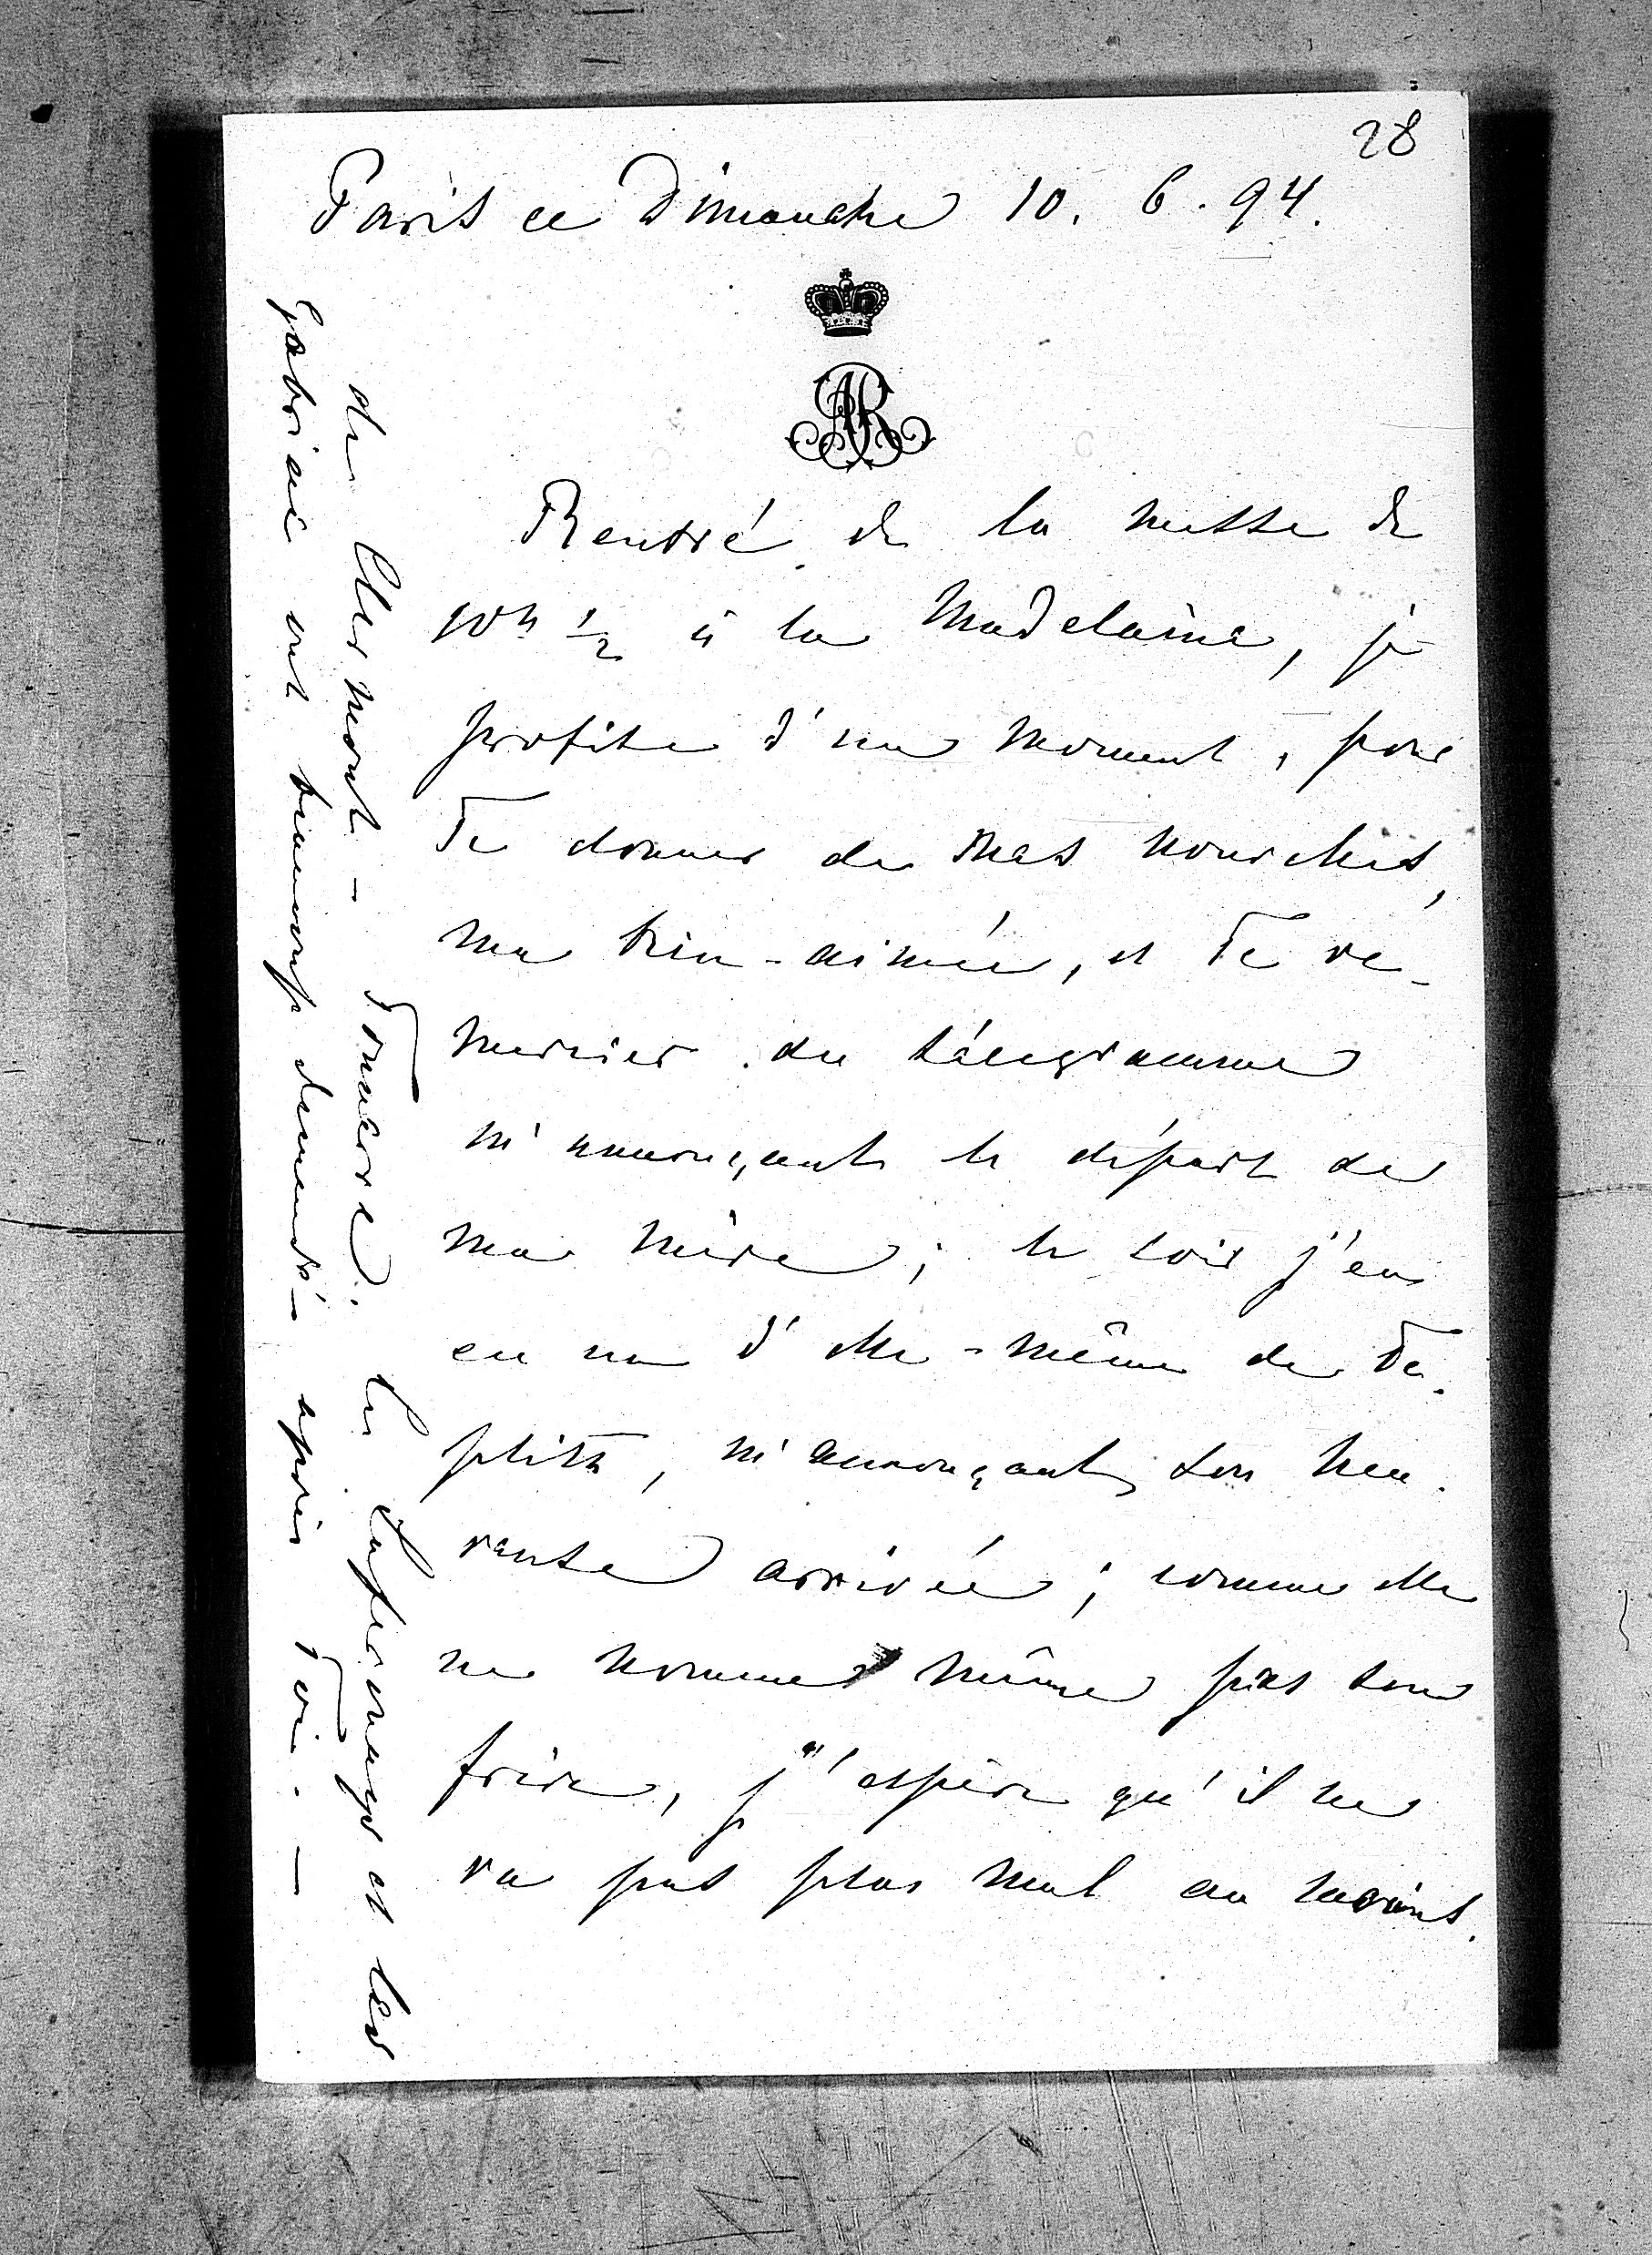 28
Paris ce Dimanche 10. 6. 94.
AR
Rentré de la messe de
10h 1/2 à la Madelaine, je
profite d'un moment, pour
Te donner de mes nouvelles,
ma bien-aimée, et Te re-
mercier du télégramme
m'annonçant le départ de
ma mère; le soir j'en
eu un d'elle-même de Te-
plitz, m'annonçant son heu-
reuse arrivée; comme elle
ne nomme même pas son
frère, j'espère qu'il ne
va pas plus mal au moins.
de Clermont-Tonnerre. Les et les
Gabriac ont beaucoup demandé après Toi. —